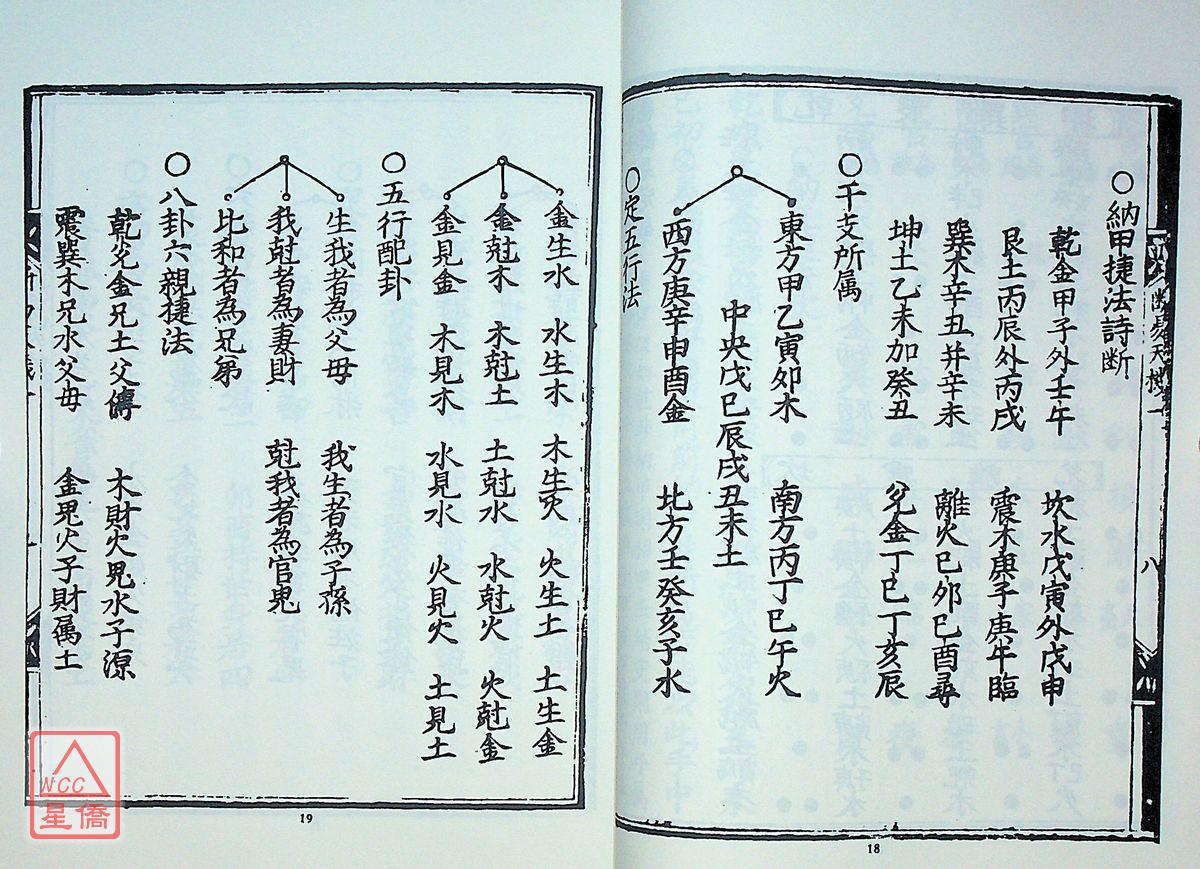 ○納甲捷法詩断
乾金甲子外壬午　坎水戊寅外戊申
艮土丙辰外丙戌　震木庚子庚午臨
巽木辛丑并辛未　離火巳卯巳酉尋
坤土乙未加癸丑　兌金丁巳丁亥辰
○干支所属
東方甲乙寅卯木　南方丙丁巳午火
中央戊巳辰戌丑未土
西方庚辛申酉金　北方壬癸亥子水
○定五行法
八
18
金生水　水生木　木生火　火生土　土生金
金尅木　木尅土　土尅水　水尅火　火尅金
金見金　木見木　水見水　火見火　土見土
○五行配卦
生我者為父母　我生者為子孫
我尅者為妻財　尅我者為官鬼
比和者為兄弟
○八卦六親捷法
乾兌金兄土父傳　木財火鬼水子源
震巽木兄水父母　金鬼火子財属土
19
WCC
星僑